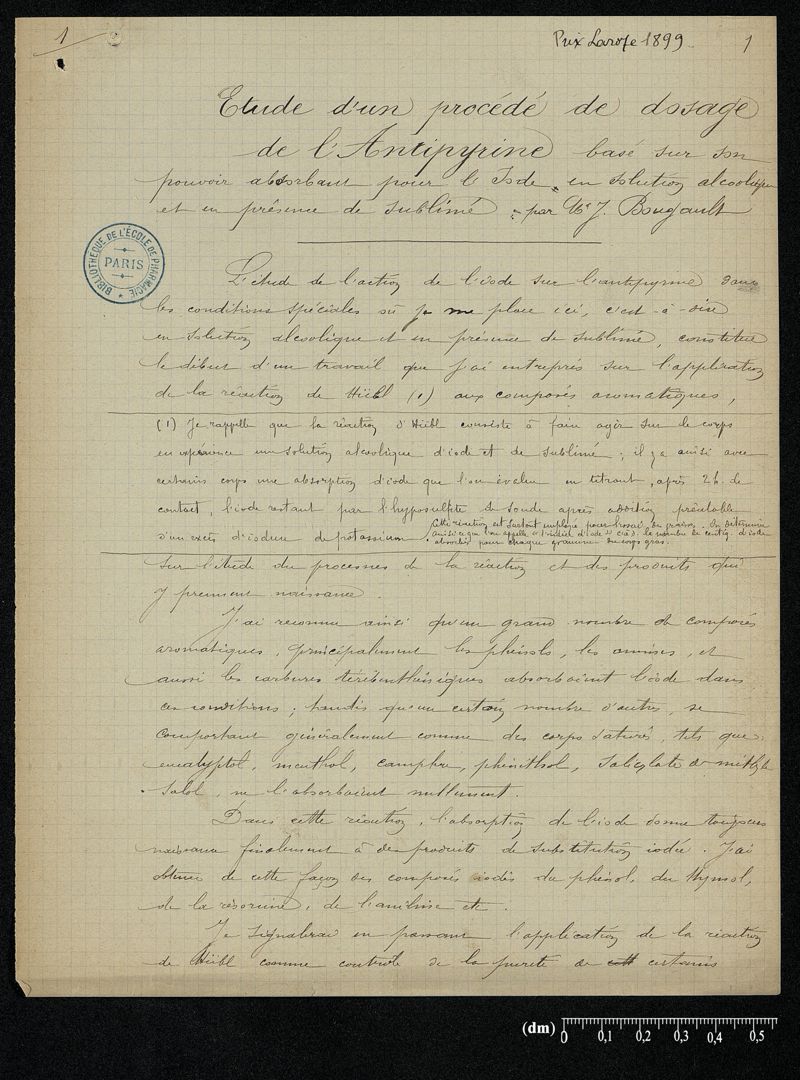 1
Prix Laroze 1899
1
Etude d'un procédé de dosage
de l'Antipyrine basé sur son
pouvoir absorbant pour l'Iode, en solution alcoolique
et en présence de sublimé ; par Mr J. Bougault
BIBLIOTHÈQUE DE L'ÉCOLE DE PHARMACIE
PARIS
L'étude de l'action de l'iode sur l'antipyrine dans
les conditions spéciales où je me place ici, c'est-à-dire
en solution alcoolique et en présence de sublimé, constitue
le début d'un travail que j'ai entrepris sur l'application
de la réaction de Hübl (1) aux composés aromatiques,
(1) Je rappelle que la réaction d'Hübl consiste à faire agir sur le corps
en expérience une solution alcoolique d'iode et de sublimé ; il y a ainsi avec
certains corps une absorption d'iode que l'on évalue en titrant, après 24h. de
contact, l'iode restant par l'hyposulfite de soude après addition préalable
d'un excès d'iodure de potassium.
Cette réaction est surtout employée pour l'essai des graisses. On détermine
ainsi ce que l'on appelle l'indice d'iode c.à.d. le nombre de centig. d'iode
absorbés pour chaque gramme du corps gras.
sur l'étude du processus de la réaction et des produits qui
y prennent naissance.
J'ai reconnu ainsi qu'un grand nombre de composés
aromatiques, principalement les phénols, les amines, et
aussi les carbures térébenthéniques absorbaient l'iode dans
ces conditions ; tandis qu'un certain nombre d'autres, se
comportant généralement comme des corps saturés, tels que
eucalyptol, menthol, camphre, phénéthol, salicylate de méthyle
salol, ne l'absorbaient nullement.
Dans cette réaction, l'absorption de l'iode donne toujours
naissance finalement à des produits de substitution iodée. J'ai
obtenu de cette façon des composés iodés du phénol, du thymol,
de la résorcine, de l'aniline etc.
Je signalerai en passant l'application de la réaction
de Hübl comme contrôle de la pureté de certains